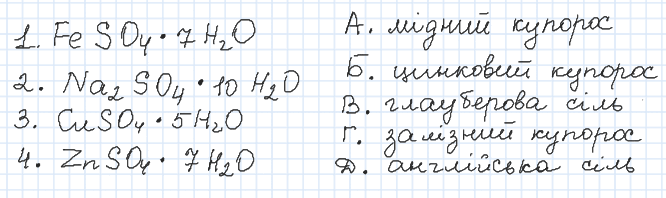 1. FeSO₄ · 7H₂O
2. Na₂SO₄ · 10H₂O
3. CuSO₄ · 5H₂O
4. ZnSO₄ · 7H₂O
А. мідний купорос
Б. цинковий купорос
В. глауберова сіль
Г. залізний купорос
Д. англійська сіль